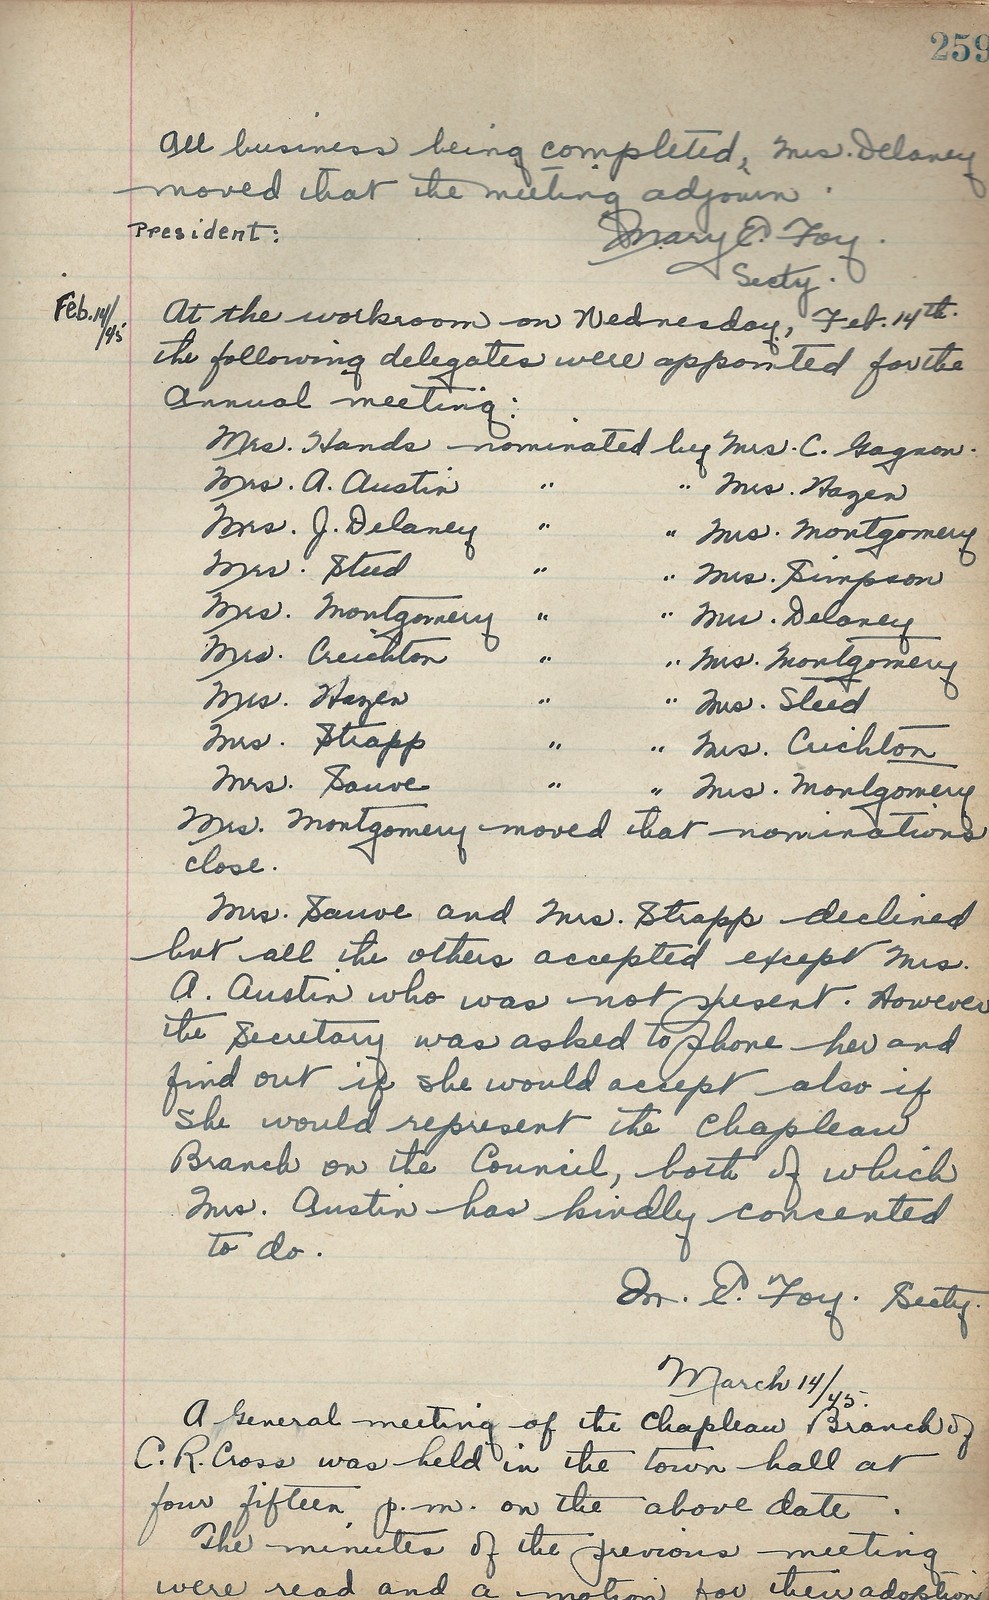 259
All business being completed, Mrs. Delaney
moved that the meeting adjourn.
President:
Mary E. Foy.
Secty.
Feb. 14/45
At the workroom on Wednesday, Feb. 14th.
the following delegates were appointed for the
Annual meeting:
Mrs. Hands nominated by Mrs. C. Gagnon.
Mrs. A. Austin " " Mrs. Hazen
Mrs. J. Delaney " " Mrs. Montgomery
Mrs. Steed " " Mrs. Simpson
Mrs. Montgomery " " Mrs. Delaney
Mrs. Creichton " " Mrs. Montgomery
Mrs. Hazen " " Mrs. Steed
Mrs. Strapp " " Mrs. Crichton
Mrs. Sauve " " Mrs. Montgomery
Mrs. Montgomery moved that nominations
close.
Mrs. Sauve and Mrs. Strapp declined
but all the others accepted except Mrs.
A. Austin who was not present. However
the Secretary was asked to phone her and
find out if she would accept also if
she would represent the Chapleau
Branch on the Council, both of which
Mrs. Austin has kindly concented
to do.
M. E. Foy. Secty.
March 14/45.
A General meeting of the Chapleau Branch of
C. R. Cross was held in the town hall at
four fifteen p.m. on the above date.
The minutes of the previous meeting
were read and a motion for their adoption